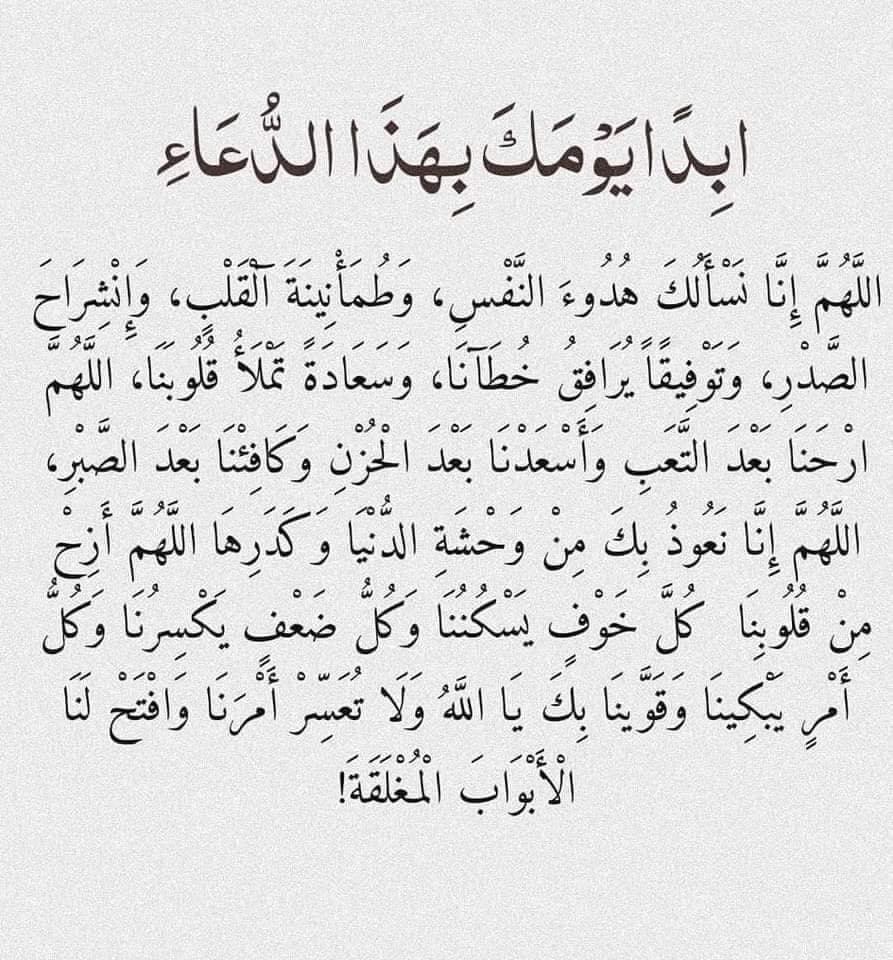 ابِدًا يَوْمَكَ بِهَذَا الدُّعَاءِ
اللَّهُمَّ إِنَّا نَسْأَلُكَ هُدُوءَ النَّفْسِ، وَطُمَأْنِينَةَ آلْقَلْبِ، وَإِنْشِرَاحَ
الصَّدْرِ، وَتَوْفِيقًاً يُرَافِقُ خُطَآنَا، وَسَعَادَةً تَمْلَأُ قُلُوبَنَا، اللَّهُم
ارْحَنَا بَعْدَ التَّعَبِ وَأَسْعَدْنَا بَعْدَ الْحُزْنِ وَكَافِئْنَا بَعْدَ الصَّبْرِ،
اللَّهُمَّ إِنَّا نَعُوذُ بِكَ مِنْ وَحْشَةِ الدُّنْيَا وَكَدَرِهَا اللَّهُمَّ أَزِحْ
مِنْ قُلُوبِنَا كُلَّ خَوْفٍ يَسْكُنُنَا وَكُلُّ ضَعْفٍ يَكْسِرُنَا وَكُلُّ
أَمْرٍ يَبْكِينَا وَقَوَّينَا بِكَ يَا اللَّهُ وَلَا تُعَسِّرْ أَمْرَنَا وَافْتَحْ لَنَا
الْأَبْوَابَ الْمُغْلَقَةَ!